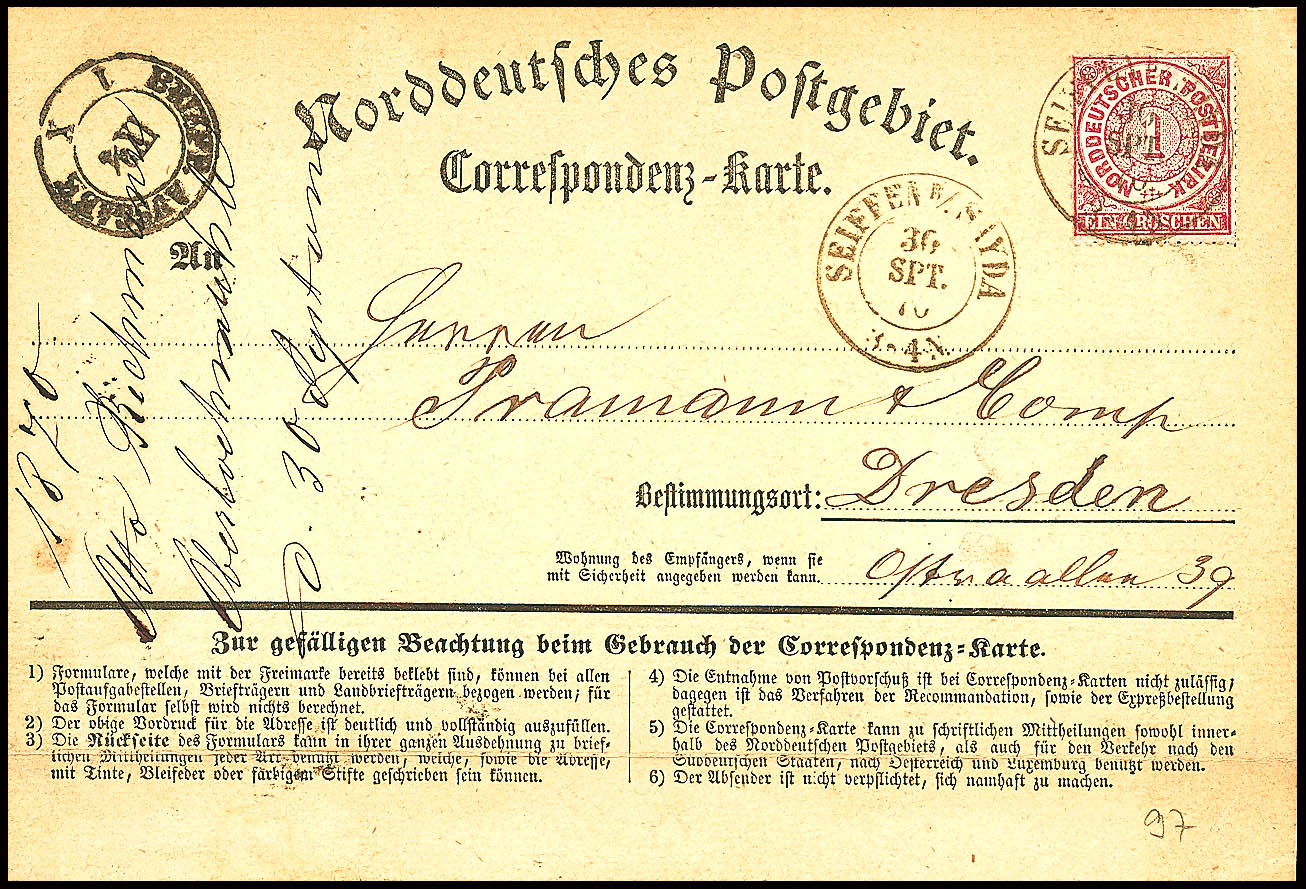 Norddeutsches Postgebiet.
Correspondenz-Karte.
NORDDEUTSCHER POSTBEZIRK
1
EIN GROSCHEN
SEIFFEN B/SAYDA
30
SPT.
70
3-4 N.
An
Herren
Framann & Comp
Bestimmungsort: Dresden
Wohnung des Empfängers, wenn sie
mit Sicherheit angegeben werden kann. Ostraallee 39
1870
Otto
30 September
Zur gefälligen Beachtung beim Gebrauch der Correspondenz-Karte.
1) Formulare, welche mit der Freimarke bereits beklebt sind, können bei allen
Postaufgabestellen, Briefträgern und Landbriefträgern bezogen werden; für
das Formular selbst wird nichts berechnet.
2) Der obige Vordruck für die Adresse ist deutlich und vollständig auszufüllen.
3) Die Rückseite des Formulars kann in ihrer ganzen Ausdehnung zu brief-
lichen Mittheilungen jeder Art benutzt werden, welche, sowie die Adresse,
mit Tinte, Bleifeder oder farbigem Stifte geschrieben sein können.
4) Die Entnahme von Postvorschuß ist bei Correspondenz-Karten nicht zulässig;
dagegen ist das Verfahren der Recommandation, sowie der Expreßbestellung
gestattet.
5) Die Correspondenz-Karte kann zu schriftlichen Mittheilungen sowohl inner-
halb des Norddeutschen Postgebiets, als auch für den Verkehr nach den
Süddeutschen Staaten, nach Oesterreich und Luxemburg benutzt werden.
6) Der Absender ist nicht verpflichtet, sich namhaft zu machen.
97